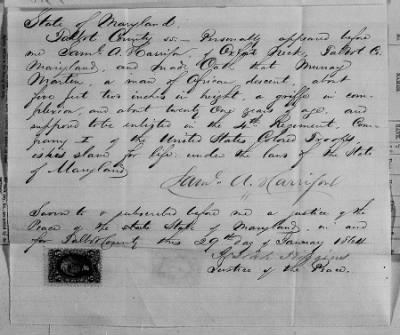 State of Maryland.
Talbot County ss:— Personally appeared before
me Saml. A. Harrison, of Oxford Neck, Talbot Co.
Maryland, and made Oath that Murray
Martin, a man of African descent, about
five feet two inches in height, a griffe in com-
plexion, and about twenty one years of age, and
supposed to be enlisted in the 4th Regiment, Com-
pany I of the United States Colored Troops
is his slave for life under the laws of the State
of Maryland
Saml. A. Harrison
Sworn to & subscribed before me a justice of the
Peace of the state State of Maryland in and
for Talbot County this 29th day of January 1864
Justice of the Peace.